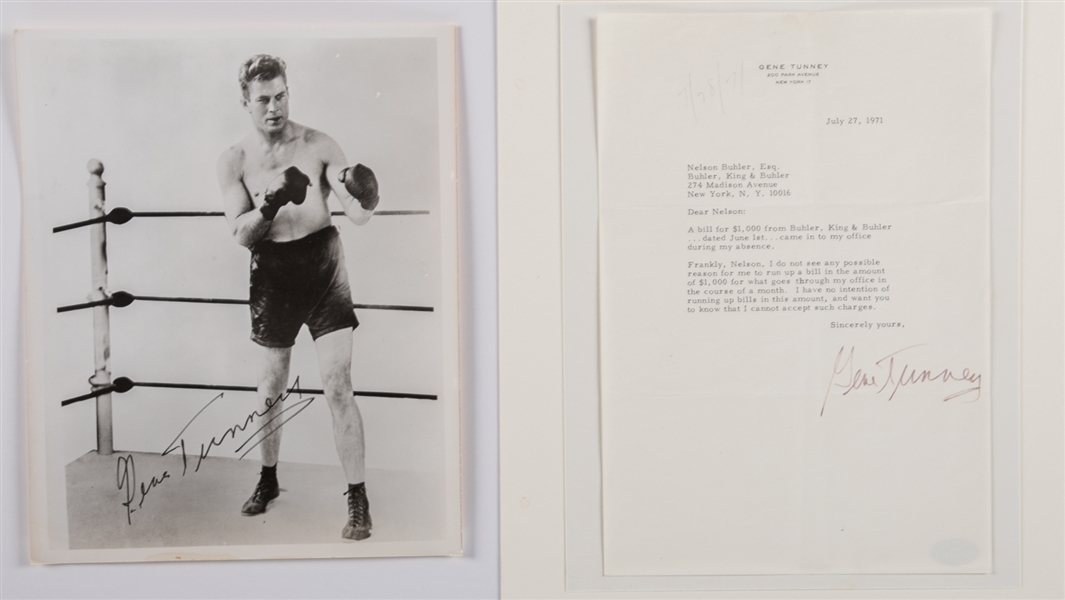 Gene Tunney
GENE TUNNEY
200 PARK AVENUE
NEW YORK 17
7/28/71
July 27, 1971
Nelson Buhler, Esq.
Buhler, King & Buhler
274 Madison Avenue
New York, N. Y. 10016
Dear Nelson:
A bill for $1,000 from Buhler, King & Buhler
...dated June 1st...came in to my office
during my absence.
Frankly, Nelson, I do not see any possible
reason for me to run up a bill in the amount
of $1,000 for what goes through my office in
the course of a month. I have no intention of
running up bills in this amount, and want you
to know that I cannot accept such charges.
Sincerely yours,
Gene Tunney